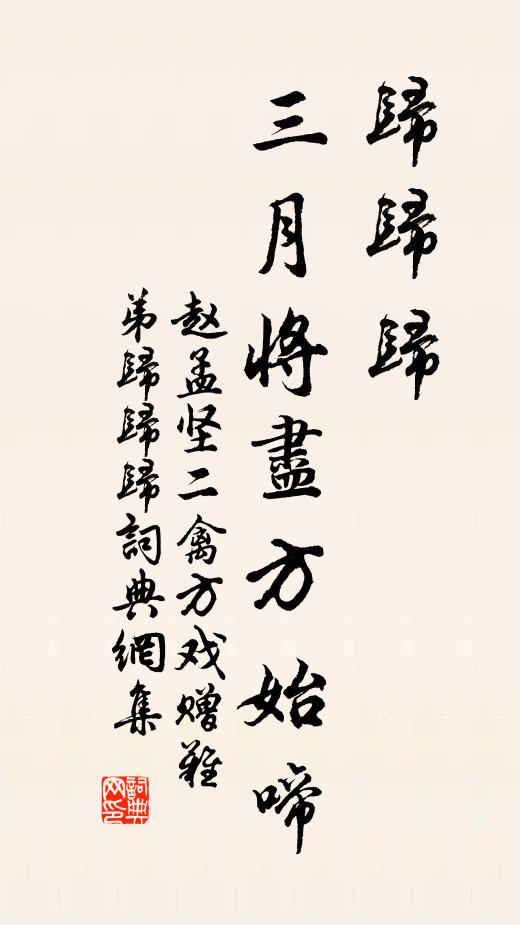 歸歸歸
三月將盡方始啼
赵孟坚二禽方戏赠難
弟歸歸歸詞典網集
詞典
网印